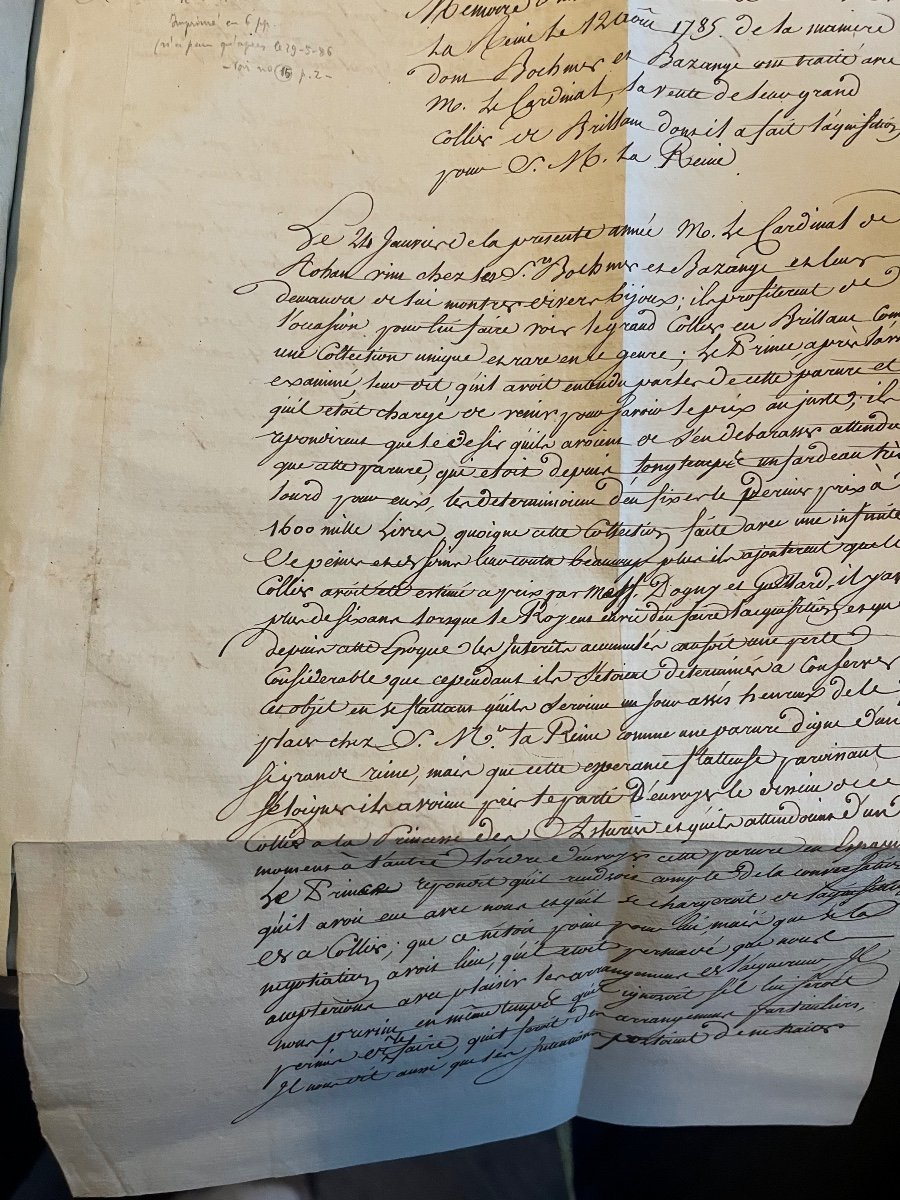 Imprimé en 6 pp.
(n'a paru qu'après le 29-5-86
- Voir no 15 p. 2 -
Mémoire
La Reine le 12 août 1785. de la maniere
dont Boehmer et Bazange ont traité avec
M. Le Cardinal, la vente de leur grand
Collier de Brillans dont il a fait l'aquisition
pour S. M. La Reine
Le 24 Janvier de la presente année M. Le Cardinal de
Rohan vint chez les Srs. Boehmer et Bazange et leur
demanda de lui montrer divers bijoux; ils profiterent de
l'occasion pour lui faire voir le grand Collier en Brillans Com
une Collection unique et rare en ce genre; Le Prince, après l'av
examiné, leur dit qu'il avoit entendu parler de cette parure et
qu'il étoit chargé de venir pour savoir le prix au juste; ils
repondirent que le desir qu'ils avoient de s'en debarasser attendu
que cette parure, qui etoit depuis longtemps un fardeau trè
lourd pour eux, les determinoient d'en fixer le dernier prix à
1600 mille Livres, quoique cette Collection faite avec une infinité
de peines et de soins leur couta beaucoup plus ils ajouterent que le
Collier avoit été estimé à prix par Mess. Dogny et Guillard, il y a
plus de six ans lorsque le Roy eut envie d'en faire l'acquisition, et que
depuis cette Epoque les Interets accumulés causoit une perte
Considerable que cependant ils s'étoient determinés à Conserver
cet objet en se flattant qu'ils seroient un jour assés heureux de le
placer chez S. M. la Reine comme une parure digne d'une
si grande reine, mais que cette esperance flatteuse paroissant
s'eloigner ils avoient pris le parti d'envoyer le dessin de ce
Collier a la Princesse des Asturies et qu'ils attendoient d'un
moment à l'autre l'ordre d'envoyer cette parure en Espagne
Le Prince repondit qu'il rendroit compte de la conversation
qu'il avoit eue avec nous et qu'il se chargeroit de l'aquisition
de ce Collier; que ce n'etoit point pour lui mais que si la
negotiation avoit lieu, qu'il etoit persuadé, que nous
accepterions avec plaisir les arrangemens de l'aquereur Il
nous prevint en même temps qu'il ignoroit s'il lui seroit
permis de le faire, qu'il feroit des arrangemens particuliers,
Il nous dit aussi que ses Intentions portoient de ne traiter